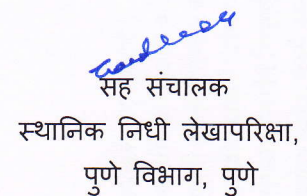 सह संचालक
स्थानिक निधी लेखापरिक्षा,
पुणे विभाग, पुणे